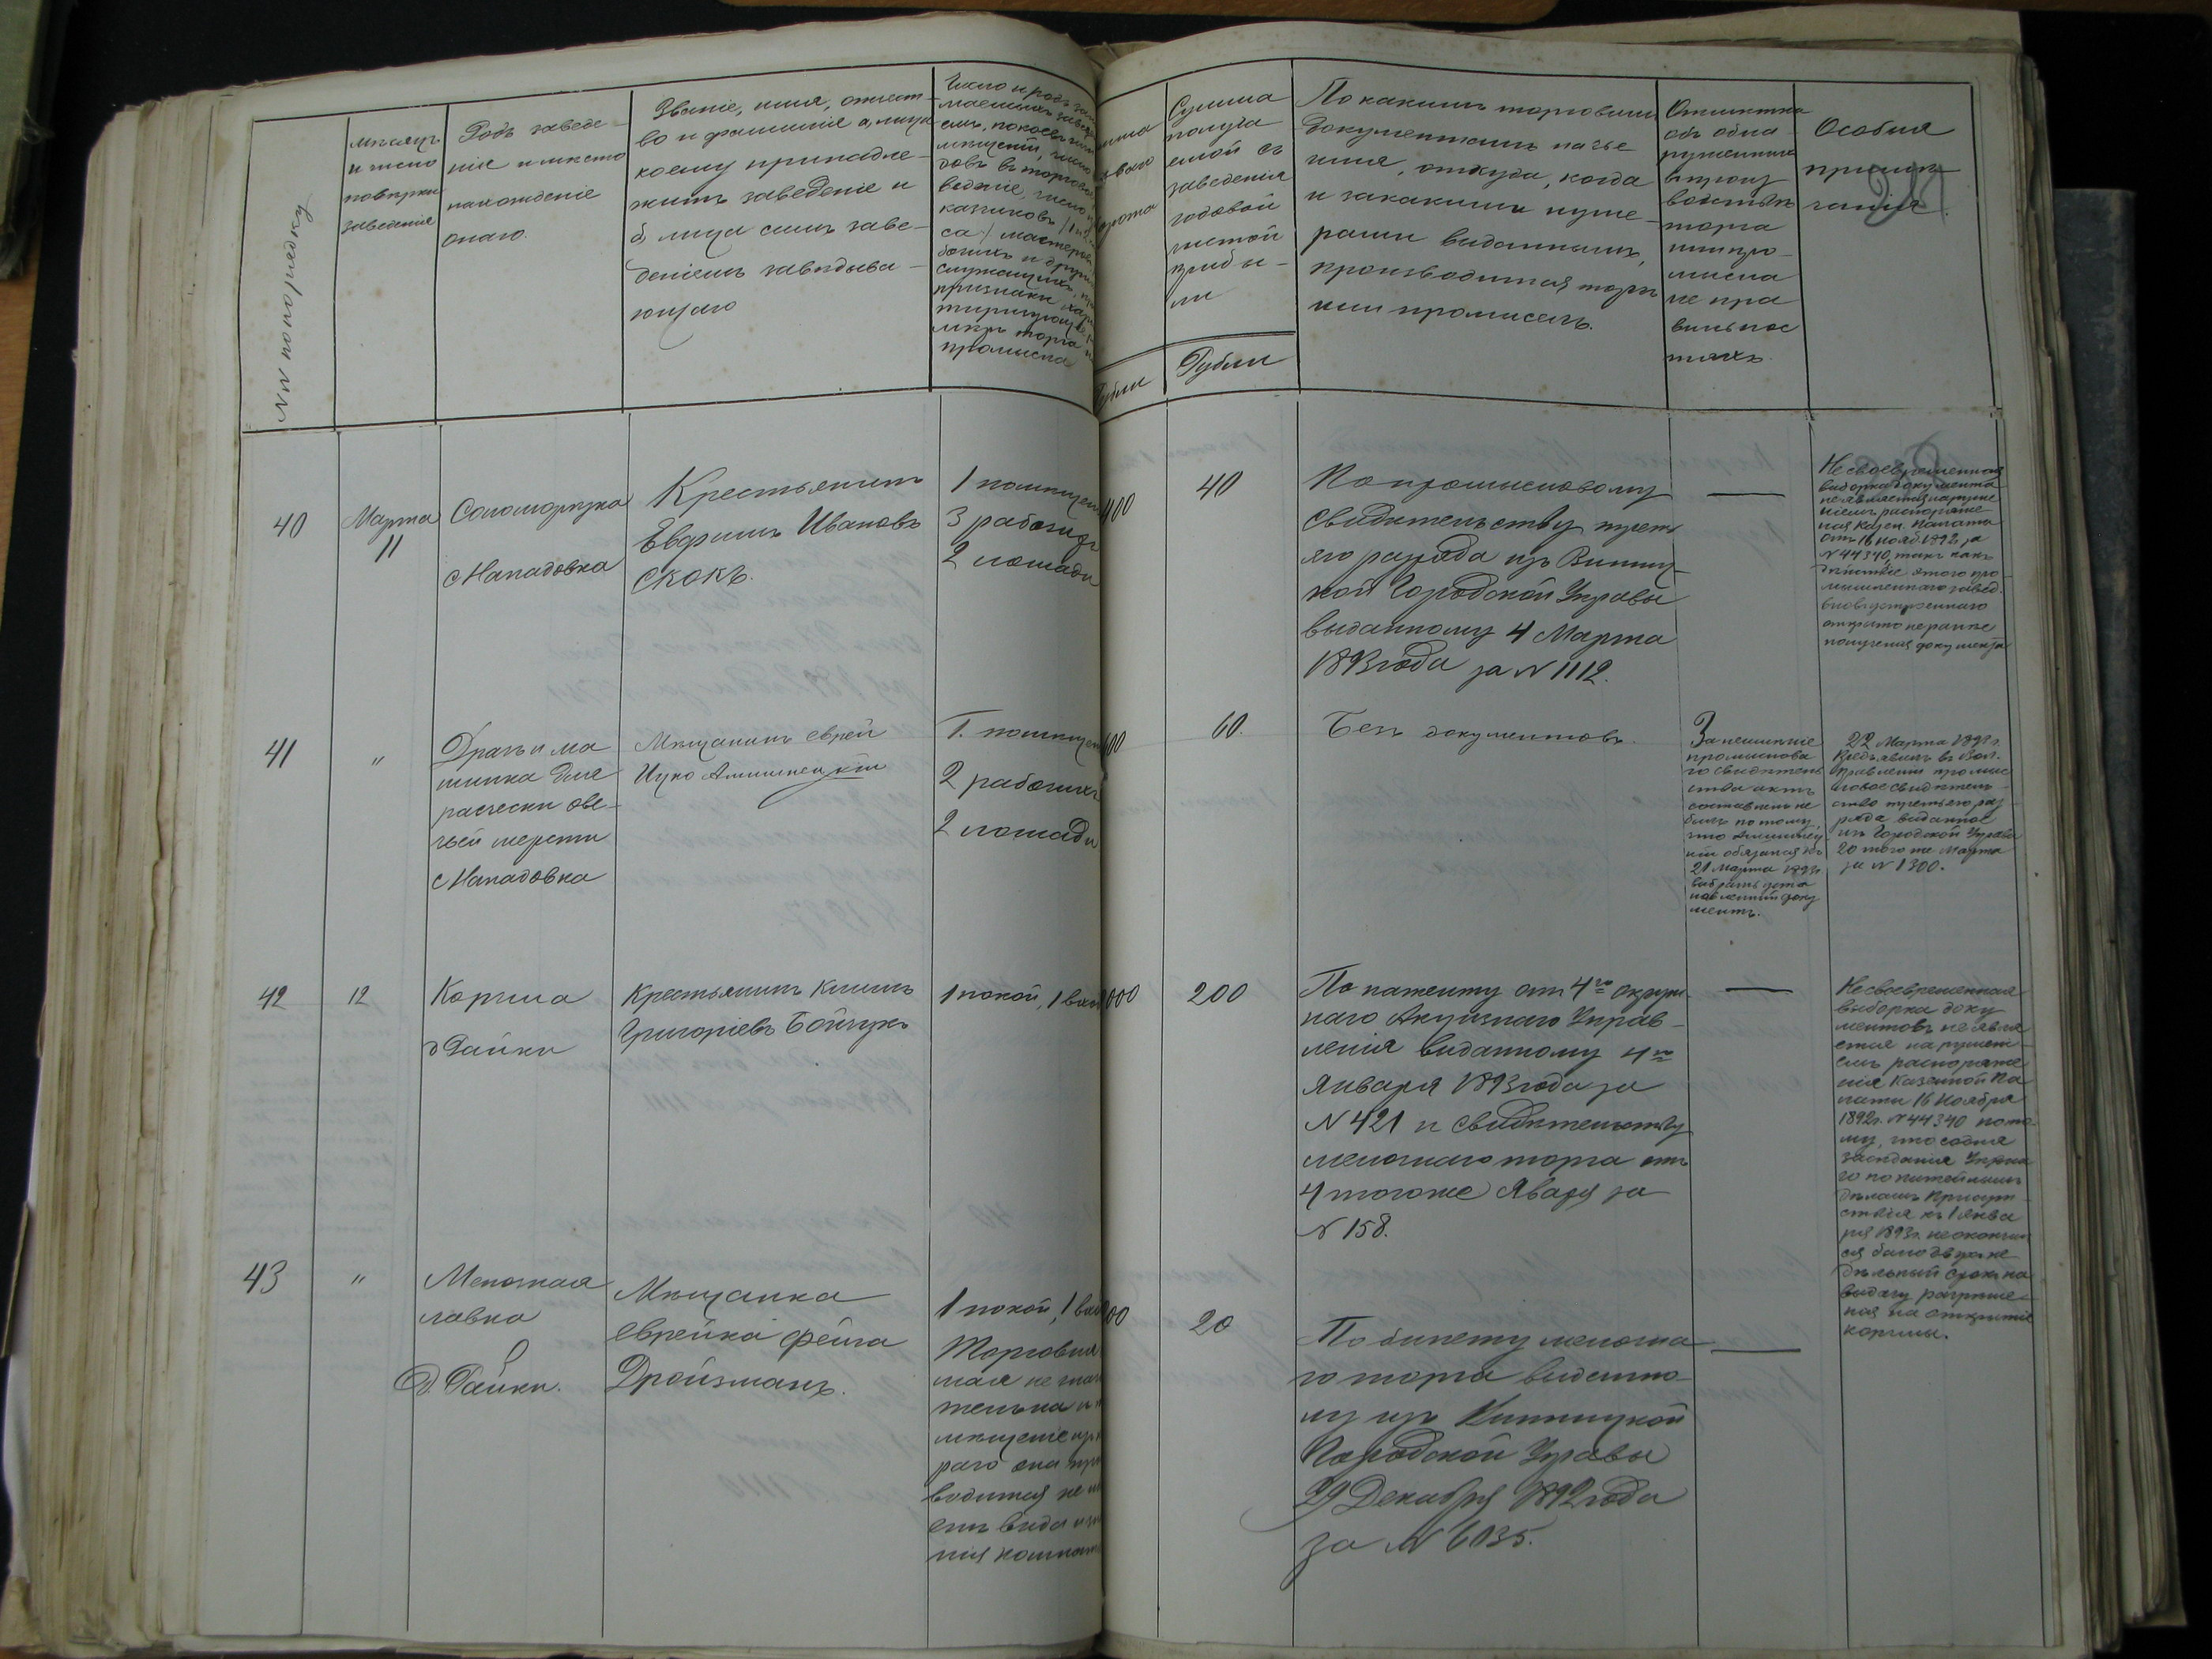 NN по порядку
Мѣсяцъ
и число
повѣрки
заведенія
Родъ заведе-
нія и место
нахожденіе
онаго.
Званіе, имя, отчест-
во и фамилія а, лица
коему принадле-
житъ заведеніе и
б, лица симъ заве-
деніемъ завѣдыва-
ющаго
Число и родъ
промысла
Рубли
Сумма
получа
емой съ
заведенія
годовой
чистой
прибы-
ли
Рубли
По какимъ торговымъ
документамъ на чье
имя, откуда, когда
и за какими нуме-
рами выданнымъ,
производится торгъ
или промыселъ.
Отмѣтка
объ обна-
руженныхъ
въ произ
водствѣ
торга
или про-
мысла
не пра
вильнос
тяхъ.
Особыя
примѣ-
чанія.
40
Марта
11
Соломорѣзка
с Нападовка
Крестьянинъ
Евфимъ Ивановъ
Скокъ.
1 помѣщен
3 рабочихъ
2 лошади
400
40
По промысловому
свидѣтельству треть
яго разряда изъ Винниц-
кой Городской Управы
выданному 4 Марта
1893 года за N 1112.
—
Несвоевременная
выборка документа
не является наруше
ніемъ распоряже-
ния Казен. Палаты
отъ 16 нояб. 1892 за
N 44340, такъ какъ
дѣйствіе этого про-
мышленнаго завед.
вновь устроеннаго
открыто не ранѣе
полученія документа
41
"
Драчъ и ма
шинка для
расчески ове-
чьей шерсти
с Нападовка
Мѣщанинъ еврей
Ицко
1. помѣщен
2 рабочихъ
2 лошади
600
60.
Безъ документовъ.
За неимѣніе
промыслова
го свидѣтель
ства актъ
составленъ не
былъ потому,
что
обязался къ
21 Марта 1893 г.
выбрать уста
новленный доку
ментъ.
22 Марта 1893 г.
предъявилъ въ Вол.
правленіи промыс
ловое свидѣтель-
ство третьяго раз-
ряда выданное
изъ Городской Управы
20 того же Марта
за N 1300.
42
12
Корчма
д Гайки
Крестьянинъ Климъ
Григоріевъ Бойчукъ
1 покой, 1 вхо
2000
200
По патенту отъ 4го окруж-
наго Акцизнаго Управ-
ленія выданному 4го
Января 1893 года за
N 421 и свидѣтельству
мелочнаго торга отъ
4 того же Января за
N 158.
—
Несвоевременная
выборка доку
ментовъ не явля
ется нарушені-
емъ распоряже
нія Казенной Па
латы 16 Ноября
1892 г. N 44340 пото
му, что со дня
засѣданія Уѣздна
го по питейнымъ
дѣламъ Присут-
ствія къ 1 янва
ря 1893 г. не окончил
ся было двухне
дѣльный срокъ на
выдачу разрѣше-
нія на открытіе
корчмы.
43
"
Мелочная
лавка
д. Гайки.
Мѣщанка
еврейка Фейга
Дройзманъ.
1 покой, 1 вхо
Торговля
мая не зна
тельна и
мѣщеніе
раго она про
водится не и
етъ вида и
нія комнат
200
20
По билету мелочна
го торга выданно
му изъ Винницкой
Городской Управы
29 Декабря 1892 года
за N 6135.
—